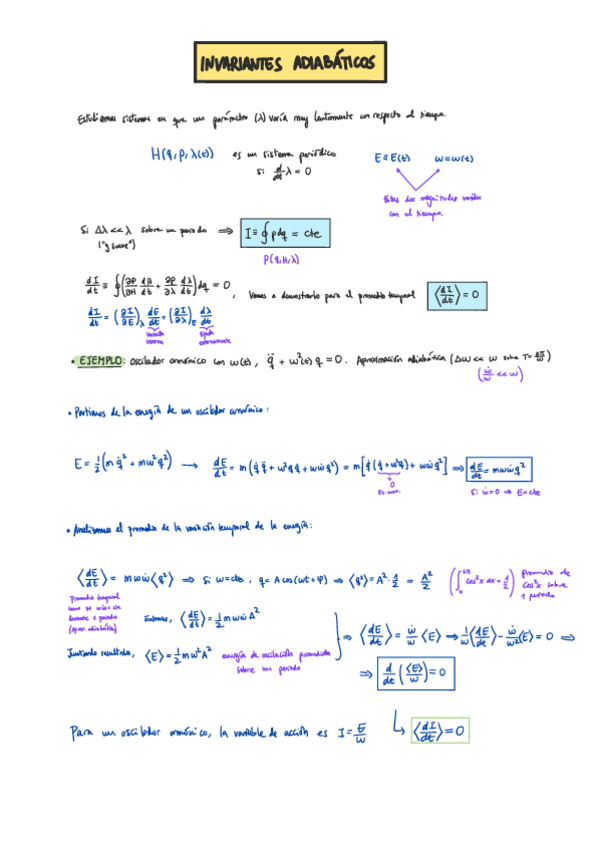 INVARIANTES ADIABÁTICOS
Estudiamos sistemas en que un parámetro (λ) varía muy lentamente con respecto al tiempo.
H(q, p, λ(t)) es un sistema periódico E ≡ E(t) ω ≡ ω(t)
si d/dt λ = 0
Estas dos magnitudes varían
con el tiempo.
Si Δλ << λ sobre un periodo ⟹ I ≡ ∮ p dq = cte
("y suave")
p(q,H,λ)
dI/dt ≡ ∮(∂p/∂H dH/dt + ∂p/∂λ dλ/dt) dq = 0, Vamos a demostrarlo para el promedio temporal ⟨dI/dt⟩ = 0
dI/dt = (∂I/∂E)_λ dE/dt + (∂I/∂λ)_E dλ/dt
variación interna
fijada externamente
• EJEMPLO: oscilador armónico con ω(t), q̈ + ω²(t) q = 0. Aproximación adiabática (Δω << ω sobre T = 2π/ω)
(ω̇/ω << ω)
• Partimos de la energía de un oscilador armónico:
E = 1/2 (m q̇² + mω²q²) ⟶ dE/dt = m(q̇ q̈ + ω²q q̇ + ωω̇ q²) = m[q̇(q̈ + ω²q) + ωω̇ q²] ⟹ dE/dt = mωω̇ q²
0
Ec. mov.
Si ω̇ = 0 ⟹ E = cte
• Analizamos el promedio de la variación temporal de la energía:
⟨dE/dt⟩ = m ω ω̇ ⟨q²⟩ ⟹ Si ω = cte, q = A cos(ωt + φ) ⟹ ⟨q²⟩ = A² · 1/2 = A²/2 (∫₀^2π cos²x dx = 1/2) Promedio de
cos²x sobre
1 periodo
Promedio temporal
durante 1 periodo
(aprox adiabática)
Entonces, ⟨dE/dt⟩ = 1/2 m ω ω̇ A²
Juntando resultados, ⟨E⟩ = 1/2 m ω² A² energía de oscilación promediada
sobre un periodo
⟹ ⟨dE/dt⟩ = ω̇/ω ⟨E⟩ ⟹ 1/ω ⟨dE/dt⟩ - ω̇/ω² ⟨E⟩ = 0 ⟹
⟹ d/dt (⟨E⟩/ω) = 0
Para un oscilador armónico, la variable de acción es I = E/ω ↳ ⟨dI/dt⟩ = 0